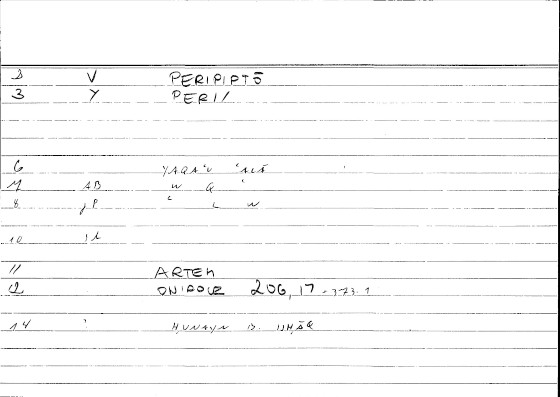 2 V PERIPIPTŌ
3 Y PERI/
6 YAQAʿU ʿALĀ
7 AB W Q ʿ
8 ʿ L W
10
11 ARTEM
12 ONIROCR 206,17-373.1
14 ḤUNAYN B. ISḤĀQ